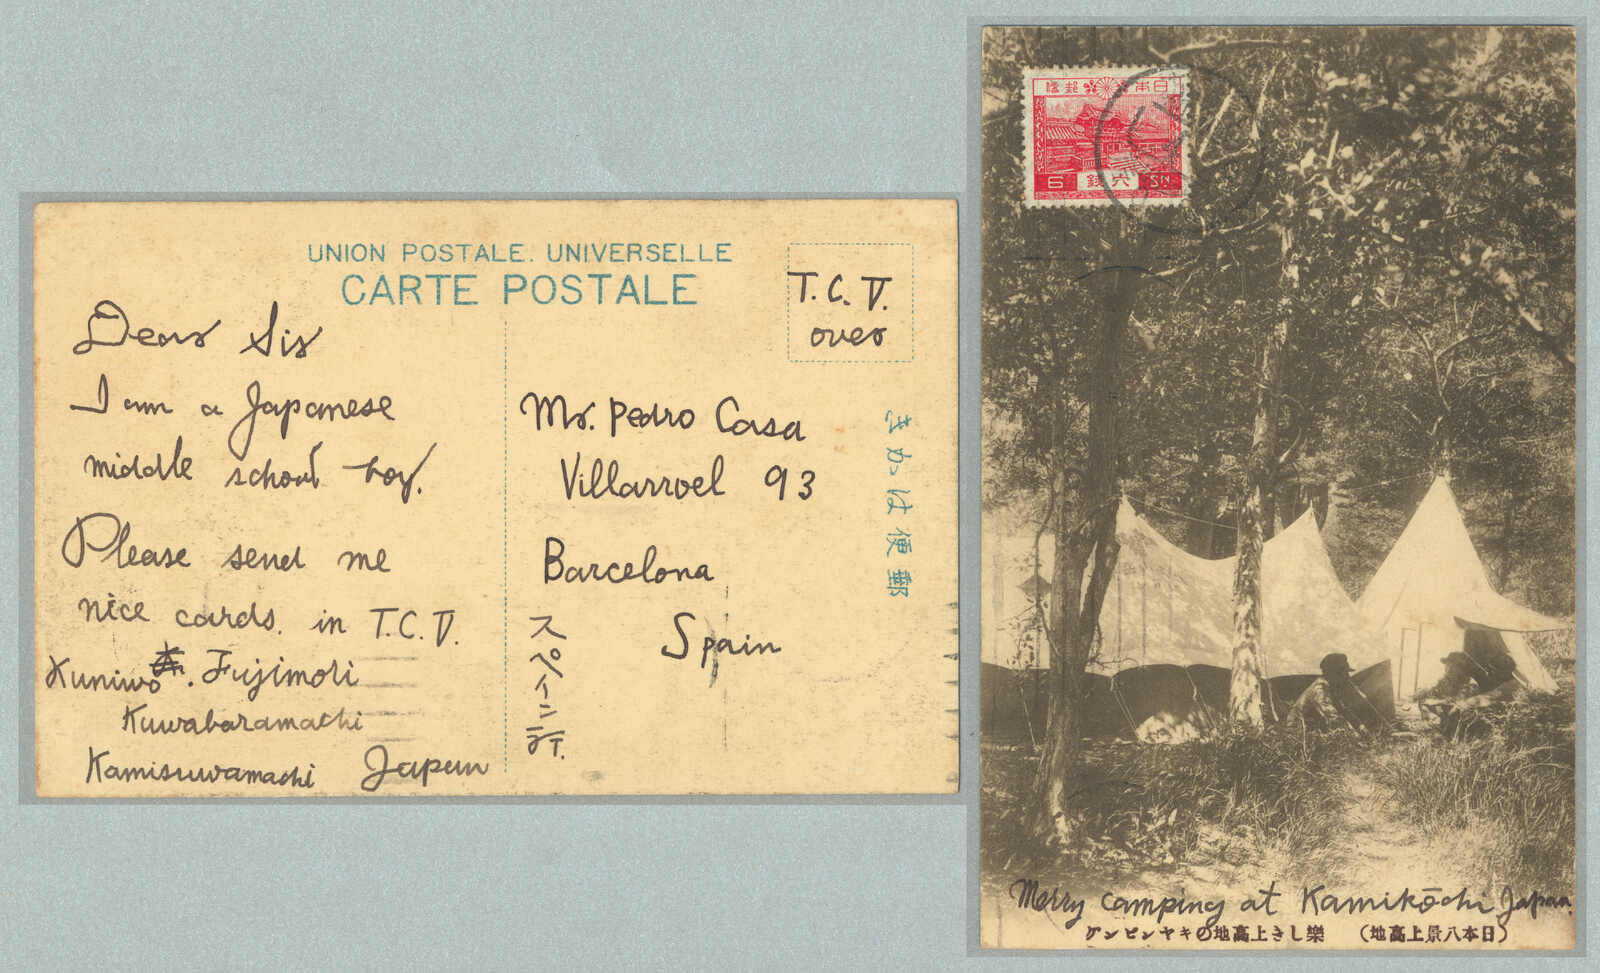 UNION POSTALE. UNIVERSELLE
CARTE POSTALE
T.C.V.
over
Dear Sir
I am a Japanese
middle school boy.
Please send me
nice cards. in T.C.V.
Kuniwo . Fujimori
Kuwabaramachi
Kamisuwamachi Japan
Mr. Pedro Casa
Villarroel 93
Barcelona
Spain
スペイン行.
きかは便郵
日本郵便
6 六銭 SN
Merry camping at Kamikōchi Japan.
(日本八景上高地) 樂しき上高地のキヤンピング